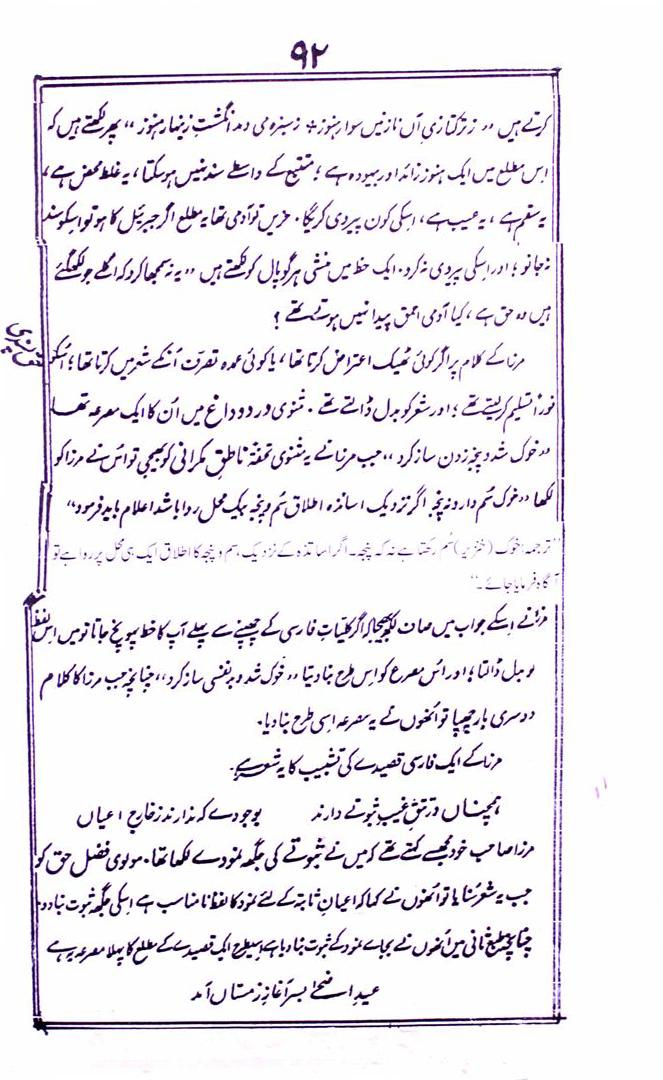 ۹۲
کرتے ہیں "ز ترکتازی آں نازنیں سوار ہنوز ٭ ز سبزہ می دمد انگشتِ زینہار ہنوز" پھر لکھتے ہیں کہ
اس مطلع میں ایک ہنوز زائد اور بیہودہ ہے؛ متبع کے واسطے سند نہیں ہوسکتا، یہ غلط محض ہے،
یہ سقم ہے، یہ عیب ہے، اسکی کون پیروی کریگا۔ حزیں تو آدمی تھا یہ مطلع اگر جبرئیل کا ہو تو اسکو سند
نہ جانو؛ اور اسکی پیروی نہ کرو۔ ایک خط میں منشی ہرگوپال کو لکھتے ہیں "یہ نہ سمجھا کرو کہ اگلے جو لکھ گئے
ہیں وہ حق ہے، کیا آدمی احمق پیدا نہیں ہوتے تھے؟
مرزا کے کلام پر اگر کوئی ٹھیک اعتراض کرتا تھا، یا کوئی عمدہ تصرف اُنکے شعر میں کرتا تھا؛ اُسکو
فوراً تسلیم کرلیتے تھے؛ اور شعر کو بدل ڈالتے تھے۔ مثنوی درد و داغ میں اُن کا ایک مصرعہ تھا
"خوک شد و پنجہ زدن ساز کرد" جب مرزا نے یہ مثنوی تحفۃً ناطق مکرانی کو بھیجی تو اس نے مرزا کو
لکھا "خوک سُم دارد نہ پنجہ اگر نزدیک اساتذہ اطلاق سُم و پنجہ بیک محل روا باشد اعلام باید فرمود"
"ترجمہ: خوک (خنزیر) سُم رکھتا ہے نہ کہ پنجہ۔ اگر اساتذہ کے نزدیک سم و پنجہ کا اطلاق ایک ہی محل پر روا ہے تو
آگاہ فرمایا جائے۔"
مرزا نے اسکے جواب میں صاف لکھ بھیجا کہ اگر کلیات فارسی کے چھپنے سے پہلے آپ کا خط پہونچ جاتا تو میں اس لفظ
کو بدل ڈالتا؛ اور اس مصرع کو اس طرح بنا دیتا "خوک شد و بد نفسی ساز کرد" چنانچہ جب مرزا کا کلام
دوسری بار چھپا تو اُنھوں نے یہ مصرعہ اسی طرح بنا دیا۔
مرزا کے ایک فارسی قصیدے کی تشبیب کا یہ شعر ہے۔
ہمچناں در تتقِ غیب ثبوتے دارند بوجودے کہ ندارند ز خارج اعیاں
مرزا صاحب خود مجھسے کہتے تھے کہ میں نے ثبوتے کی جگہ نمودے لکھا تھا۔ مولوی فضل حق کو
جب یہ شعر سُنایا تو اُنھوں نے کہا کہ اعیانِ ثابتہ کے لئے نمود کا لفظ نامناسب ہے اسکی جگہ ثبوت بنادو۔
چنانچہ طبع ثانی میں اُنھوں نے بجاے نمود کے ثبوت بنا دیا ہے اسیطرح ایک قصیدے کے مطلع کا پہلا مصرعہ یہ ہے
عیدِ اضحیٰ بسر آغازِ زمستاں آمد